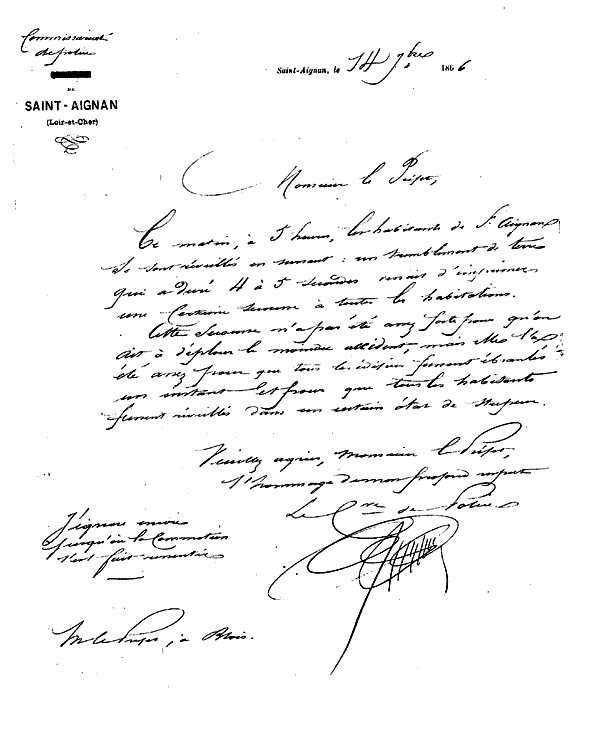 Commissariat
de police
DE
SAINT-AIGNAN
(Loir-et-Cher)
Saint-Aignan, le 14 7bre 1866
Monsieur le Préfet,
Ce matin, à 5 heures, les habitants de St Aignan
se sont réveillés en sursaut : un tremblement de terre
qui a duré 4 à 5 secondes venait d'imprimer
une certaine secousse à toutes les habitations.
Cette secousse n'a pas été assez forte pour qu'on
ait à déplorer le moindre accident, mais elle l'a
été assez pour que tous les édifices fussent ébranlés
un instant et pour que tous les habitants
fussent réveillés dans un certain état de stupeur.
Veuillez agréer, Monsieur le Préfet,
l'hommage de mon profond respect
Le Cre de Police
J'ignore encore
jusqu'où la Commotion
s'est fait ressentir
M. le Préfet, à Blois.